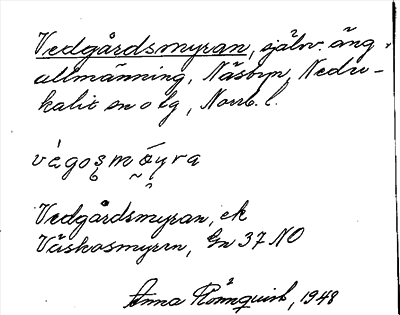 Vedgårdsmyran, självr. äng,
allmänning, Näsbyn, Nedre-
kalix sn o lg, Norrb. l.
Vedgårdsmyran, ek
Väskosmyrrn, Gn 37 NO
Anna Rönnquist, 1948